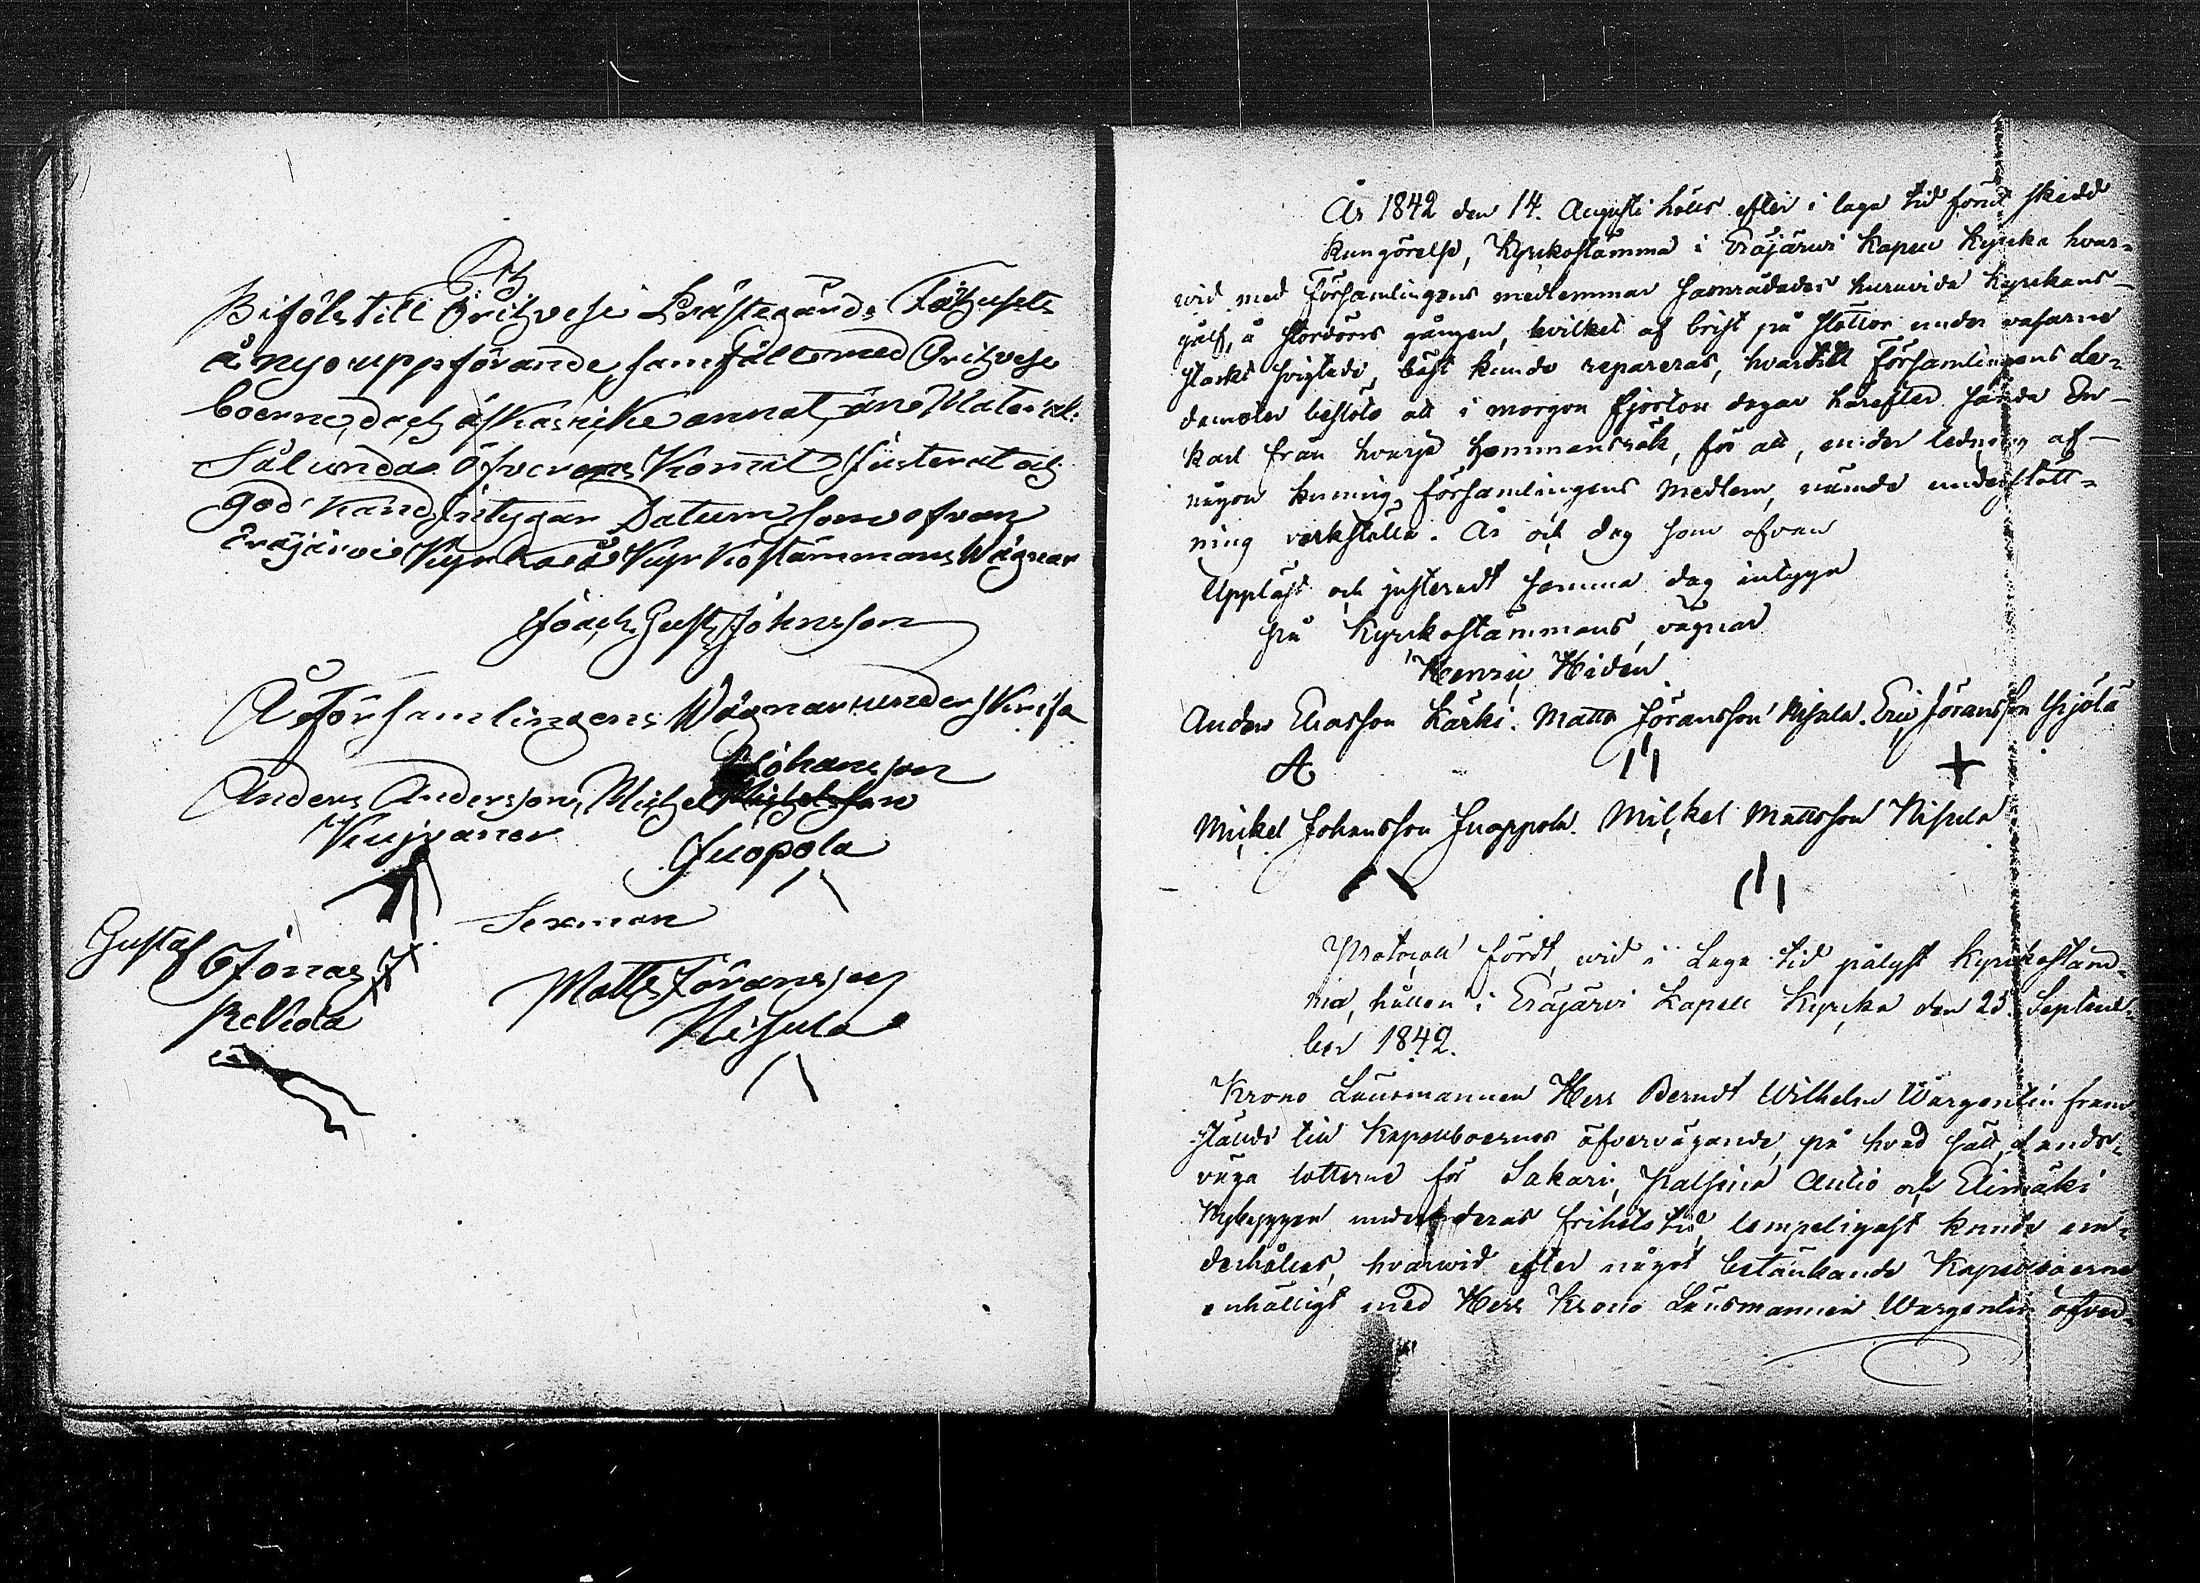 Och
Bifôls till Öritzvesi Prästegårds Fähusets
å nyo uppförande, samfält med Öritzvesi
boerne, doch åstkas icke annat, än Material:
Sålunda öfverens Kommit, Justerat och
god känd, Intygar Datum som ofvan
Eräjärvi Kyrka å Kyrkostämmans Wägnar
Joach. Gust. Johnsson
Å Församlingens Wägnar underskrifva
Anders Andersson, Michel Johansson
Kujvanen Juopola
Sexman
Gustaf Jonas S.
Rekola
Matts Jöransson
Nisula
År 1842 den 14. Augusti hölls efter i laga tid förut skedd
kungörelse, Kyrkostämma i Eräjärvi Kapell Kyrka hvar-
wid med Församlingens medlemmar samrådades huruvida Kyrkans
golf, å stordörrs gången, hvilket af brist på stöttor under vasarne
starkt svigtade, bäst kunde repareras, hvartill Församlingens Le-
damöter beslöto att i morgon fjorton dagar härefter sända En
karl från hvarje hemmansrök, för att, under ledning af
någon kunnig Församlingens medlem, nämde understött-
ning verkställa. År och dag som ofvan
Uppläst och justeradt samma dag intyga
på Kyrkostämmans vägnar
Henric Hidén
Anders Eliasson Kärki. Matts Jöransson Nisula. Eric Jöransson Yrjölä
A
Mickel Johansson Juoppola. Mickel Mattsson Nisula
Protocoll fördt, wid i Laga tid pålyst Kyrkostäm-
ma, hållen i Eräjärvi Kapell Kyrka den 25. Septem-
ber 1842.
Krono Länsmannen Herr Berndt Wilhelm Wargentin fram-
stälde till Kapellboernes öfvervägande, på hvad sätt lands-
väga lotterne för Sakari, Palsina Autio och Eimäki
Nybyggen under deras frihets tid lämpeligast kunde un-
derhållas, hvarwid efter något betänkande Kapellboerne
enhälligt med Herr Krono Länsmannen Wargentin öfver-